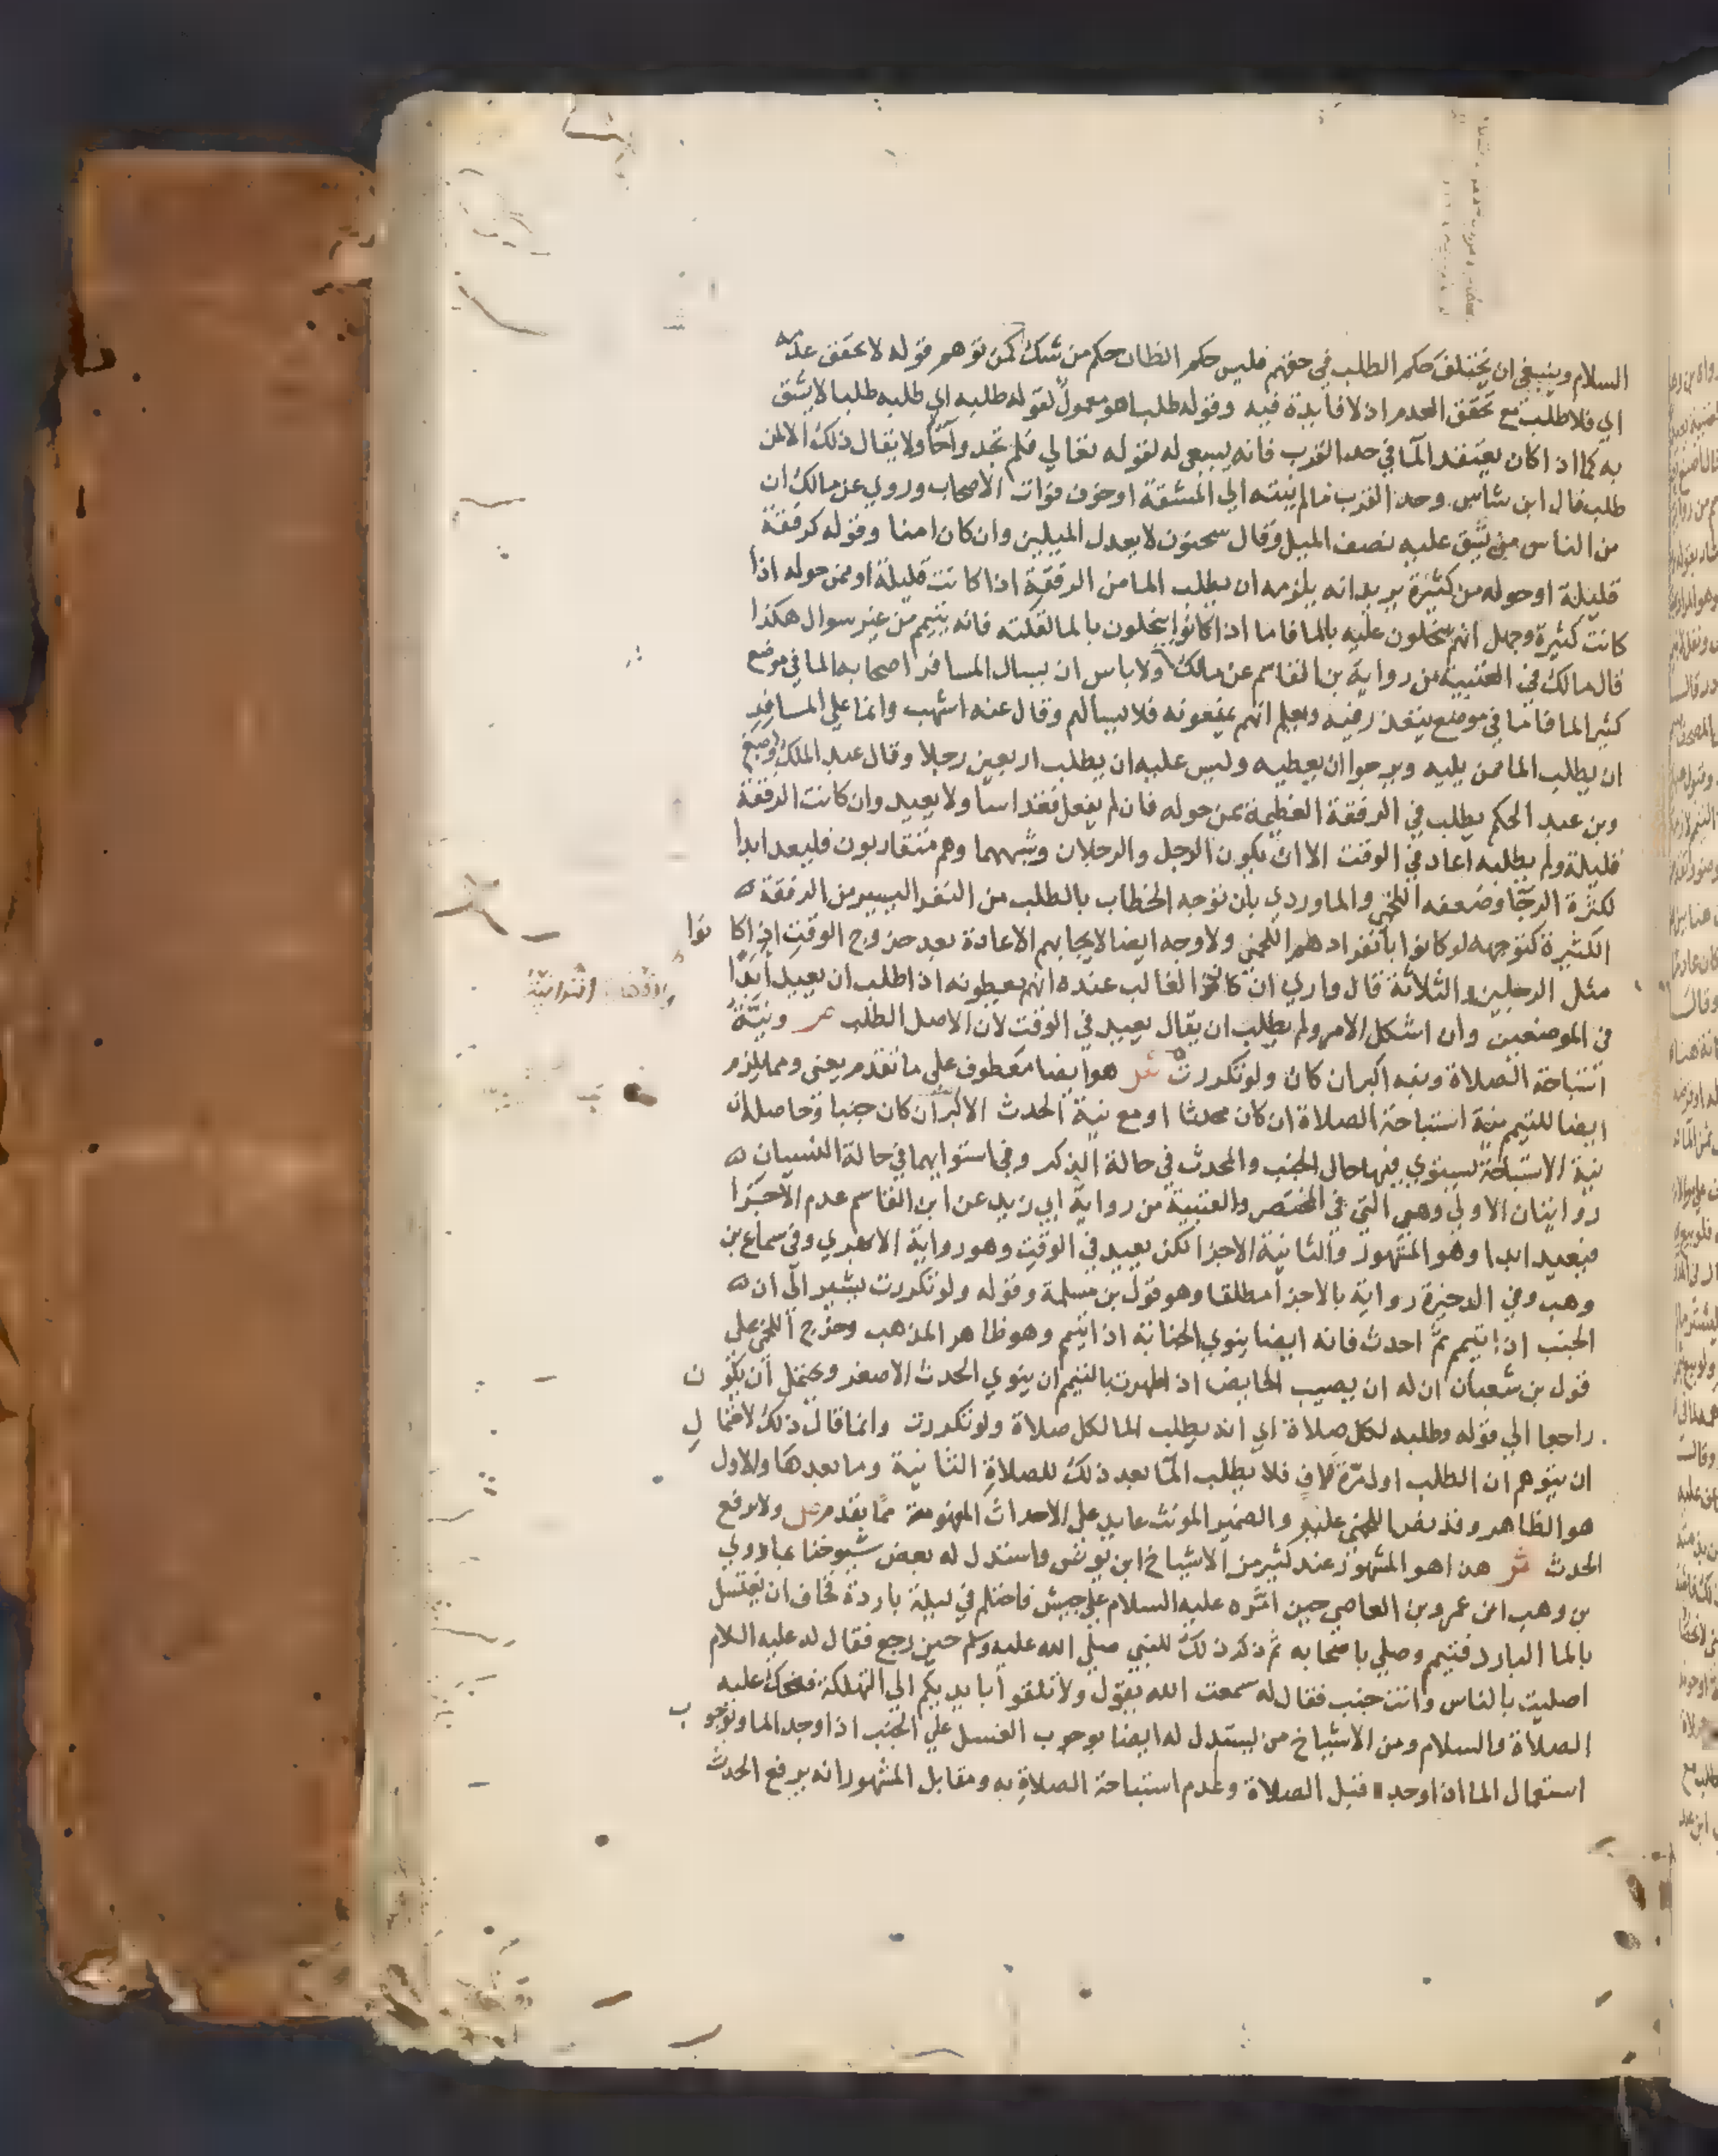 السلام وينبغي ان يختلف حكم الطلب في حقهم فليس حكم الظان حكم من شك كمن توهم قوله لا تحقق عدمه
اي فلا طلب مع تحقق العدم اذ لا فايدة فيه وقوله طلبا هو معمول لقوله طلبه اي طلبه طلبا لا يشق
به كما اذا كان يعتقد الما في حد القرب فانه يسعى له لقوله تعالي فلم تجدوا ما ولا يقال ذلك الا لمن
طلب قال ابن شاس وحد القرب ما لم ينته الي المشقة او خوف فوات الاصحاب وروي عن مالك ان
من الناس من يشق عليه نصف الميل وقال سحنون لا يعدل الميلين وان كان امنا وقوله كرفقة
قليلة او حوله من كثيرة يريد انه يلزمه ان يطلب الما من الرفقة اذا كانت قليلة او ممن حوله اذا
كانت كثيرة وجهل انهم يبخلون عليه بالما فاما اذا كانوا يبخلون بالما لقلته فانه يتيمم من غير سوال هكذا
قال مالك في العتبية من رواية بن القاسم عن مالك ولا باس ان يسال المسافر اصحابه الما في موضع
كثير الما فاما في موضع يتعذر فيه ويعلم انهم يمنعونه فلا يسالهم وقال عنه اشهب وانما علي المسافر
ان يطلب الما ممن يليه ويرجوا ان يعطيه وليس عليه ان يطلب اربعين رجلا وقال عبد الملك واصبغ
وبن عبد الحكم يطلب في الرفقة العظيمة ممن حوله فان لم يفعل فقد اسا ولا يعيد وان كانت الرفقة
قليلة ولم يطلبه اعاد في الوقت الا ان يكون الرجل والرجلان وشبههما وهم متقاربون فليعد ابدا
لكثرة الرجا وضعفه اللخمي والماوردي بان توجه الخطاب بالطلب من النفر اليسير من الرفقة
الكثيرة كتوجهه لو كانوا بانفرادهم اللخمي ولا وجه ايضا لايجابهم الاعادة بعد خروج الوقت اذا كانوا
مثل الرجلين والثلاثة قال واري ان كان الغالب عنده انهم يعطونه اذا طلب ان يعيد ابدا
في الموضعين وان اشكل الامر ولم يطلب ان يقال يعيد في الوقت لان الاصل الطلب ص ونية
استباحة الصلاة ونية اكبر ان كان ولو تكررت ش هو ايضا معطوف علي ما تقدم يعني ومما يلزم
ايضا للتيمم نية استباحة الصلاة ان كان محدثا او مع نية الحدث الاكبر ان كان جنبا وحاصله ان
نية الاستباحة يستوي فيها حال الجنب والمحدث في حالة الذكر وفي استوايهما في حالة النسيان
روايتان الاولي وهي التي في المختصر والعتبية من رواية ابي زيد عن ابن القاسم عدم الاجزا
فيعيد ابدا وهو المشهور والثانية الاجزا لكن يعيد في الوقت وهو رواية الابهري وفي سماع بن
وهب وفي الدخيرة رواية بالاجزا مطلقا وهو قول بن مسلمة وقوله ولو تكررت يشير الي ان
الجنب اذا تيمم ثم احدث فانه ايضا ينوي الجنابة اذا تيمم وهو ظاهر المذهب وخرج اللخمي علي
قول بن شعبان ان له ان يصيب الحايض اذا طهرت بالتيمم ان ينوي الحدث الاصغر ويحتمل ان يكون
راجعا الي قوله وطلبه لكل صلاة اي انه يطلب الما لكل صلاة ولو تكررت وانما قال ذلك لاحتمال
ان يتوهم ان الطلب اول مرة كاف فلا يطلب الما بعد ذلك للصلاة الثانية وما بعدها والاول
هو الظاهر وقد نص اللخمي عليه والضمير المونث عايد علي الاحداث المفهومة مما تقدم ص ولا يرفع
الحدث ش هذا هو المشهور عند كثير من الاشياخ ابن يونس واستدل له بعض شيوخنا بما روي
بن وهب ان عمرو بن العاصي حين امره عليه السلام علي جيش فاحتلم في ليلة باردة فخاف ان يغتسل
بالما البارد فتيمم وصلي باصحابه ثم ذكر ذلك للنبي صلي الله عليه وسلم حين رجع فقال له عليه السلام
اصليت بالناس وانت جنب فقال له سمعت الله يقول ولا تلقوا بايديكم الي التهلكة فضحك عليه
الصلاة والسلام ومن الاشياخ من يستدل له ايضا بوجوب الغسل علي الجنب اذا وجد الما وبوجوب
استعمال الما اذا وجده قبل الصلاة وعدم استباحة الصلاة به ومقابل المشهور انه يرفع الحدث